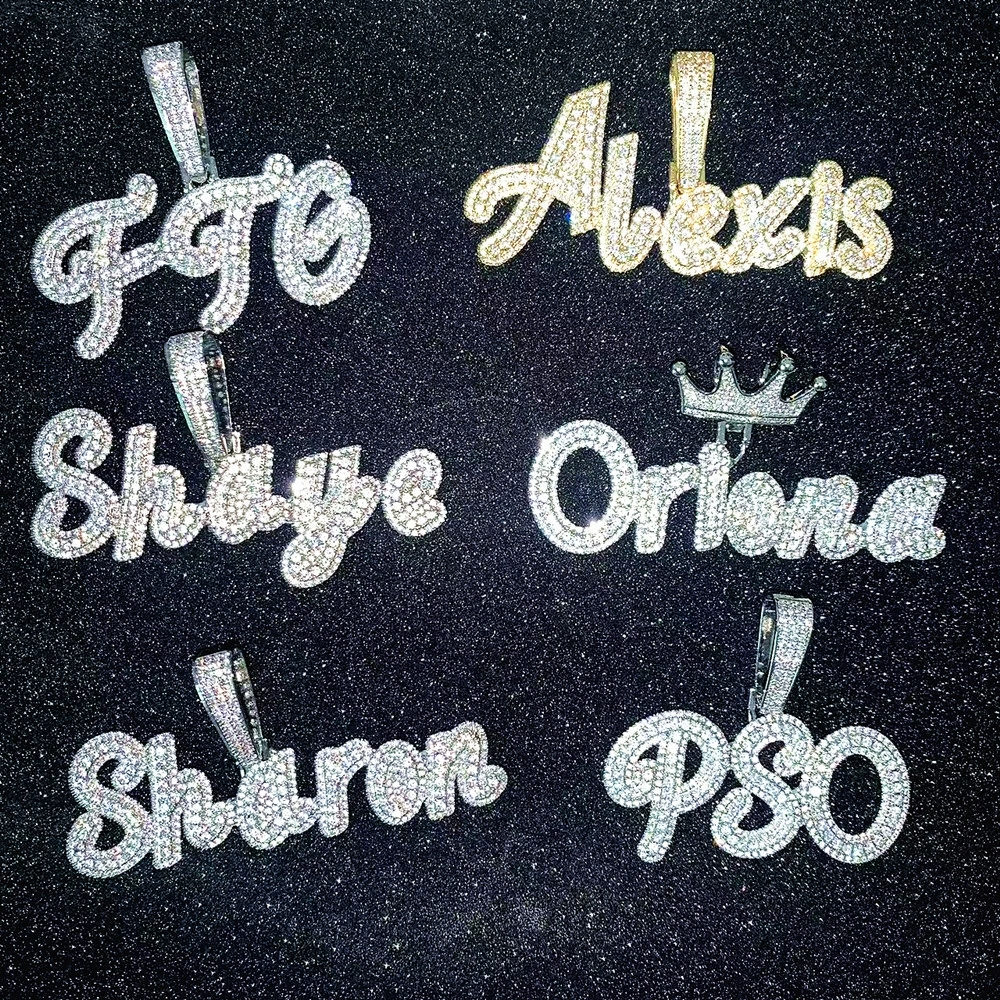 Alexis
Shaye
Oriana
Sharon
PSO